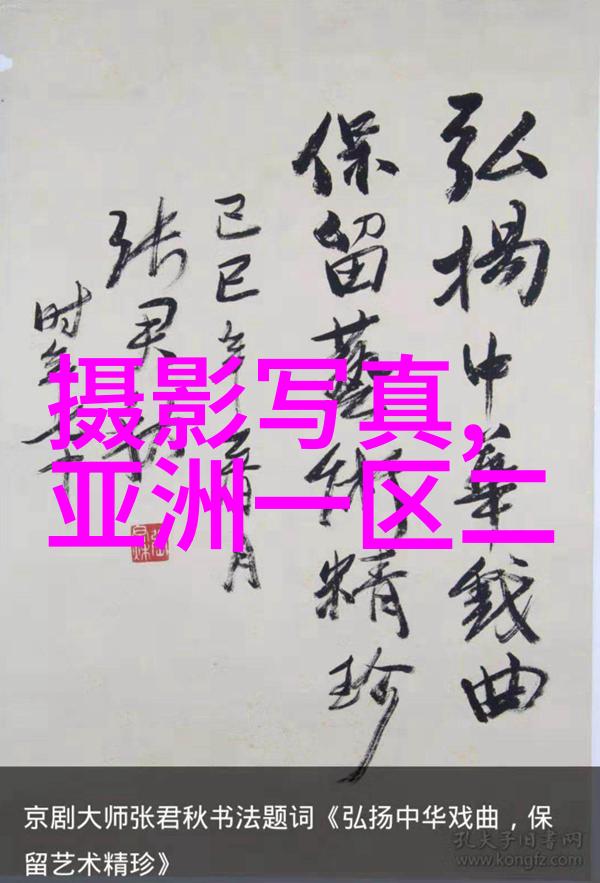 弘揚中華戲曲
保留藝術精珍
己巳年月
张君秋
时年
摄影写真,
亚洲一区二
京剧大师张君秋书法题词《弘扬中华戏曲，保
留艺术精珍》
孔夫子旧书网
www.kongfz.com